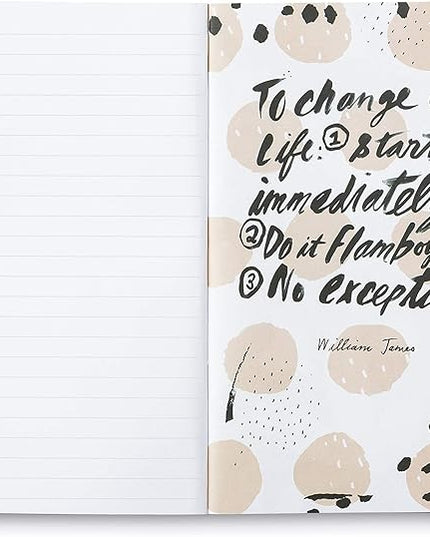 To change
life: ① Start
immediately
② Do it Flamboy
③ No except
William James